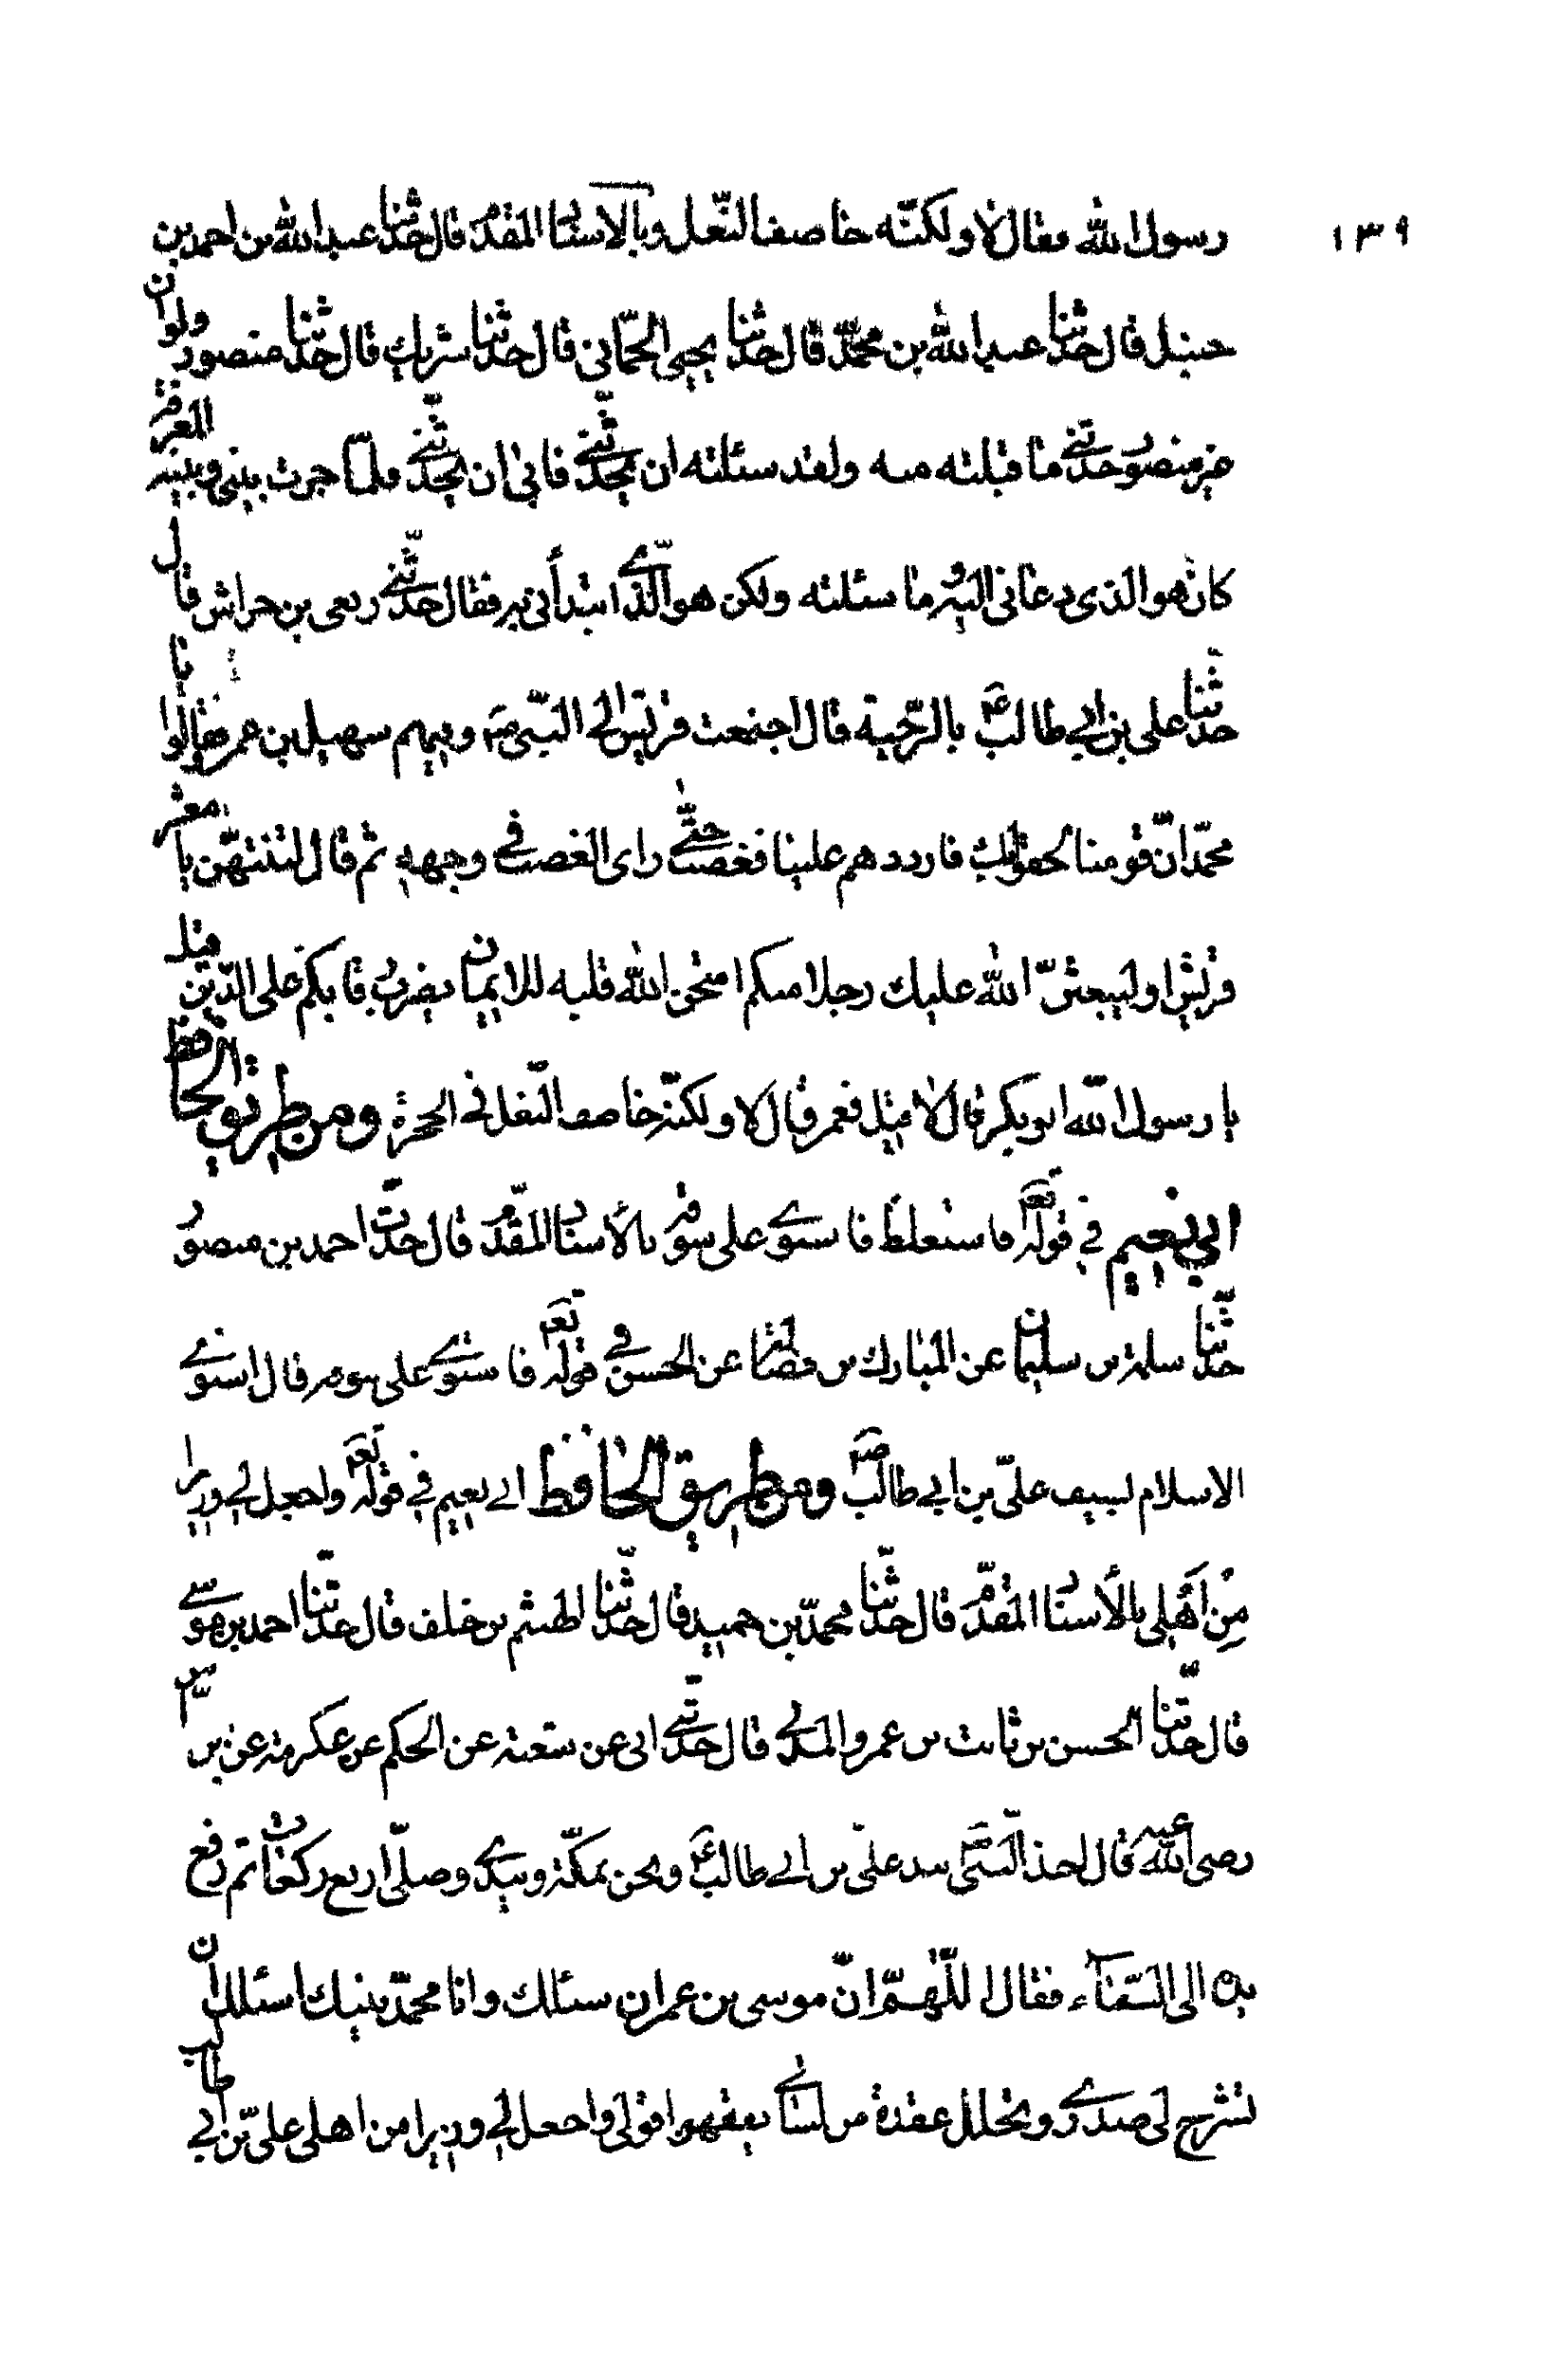 ١٣٩
رسول الله فقال لا ولكنّه خاصف النّعل وبالاسناد المقدّم قال حدّثنا عبد الله بن احمد بن
حنبل قال حدّثنا عبد الله بن محمّد قال حدّثنا يحيى الحمّاني قال حدّثنا شريك قال حدّثنا منصور ولو ان
غير منصور حدّثني ما قبلته منه ولقد سئلته ان يحدّثني فابى ان يحدّثني فلمّا جرت بيني وبينه المعرفة
كان هو الذي دعاني اليه وما سئلته ولكن هو الّذي ابتدأني به فقال حدّثني ربعي بن حراش قال
حدّثنا علي بن ابي طالب ع بالرّحبة قال اجتمعت قريش الى النّبي ص وفيهم سهيل بن عمر فقالوا يا
محمّد انّ قومنا لحقوا بك فارددهم علينا فغضب حتّى راى الغضب في وجهه ثم قال لتنتهنّ يا معشر
قريش او ليبعثنّ الله عليك رجلا منكم امتحن الله قلبه للايمان يضرب رقابكم على الدّين قيل
يا رسول الله ابو بكر قال لا قيل فعمر قال لا ولكنّه خاصف النّعل في الحجرة ومن طريق الحافظ
ابي نعيم في قوله تع فاستغلظ فاستوى على سوقه بالأسناد المقدّم قال حدّث احمد بن منصور
حدّثنا سلمة بن سليمان عن المبارك بن فضالة عن الحسن في قوله تع فاستوى على سوقه قال استوى
الاسلام بسيف علىّ بن ابي طالب ع ومن طريق الحافظ ابي نعيم في قوله تع واجعل لي وزيرا
مِنْ اَهْلِي بالأسناد المقدّم قال حدّثنا محمّد بن حميد قال حدّثنا الهيثم بن خلف قال حدّثنا احمد بن موسى
قال حدّثنا الحسن بن ثابت بن عمرو المدني قال حدّثني ابي عن شعبة عن الحكم عن عكرمة عن بن عبّاس
رضي الله عنه قال اخذ النّبي ص بيد علىّ بن ابي طالب ع ونحن بمكّة وبيدي وصلّى اربع ركعات ثم رفع
يده الى السّماء فقال اللّهمّ انّ موسى بن عمران سئلك وانا محمّد نبيك اسئلك ان
تشرح لي صدري وتحلل عقدة من لساني يفقهوا قولي واجعل لي وزيرا من اهلي علىّ بن ابي طالب